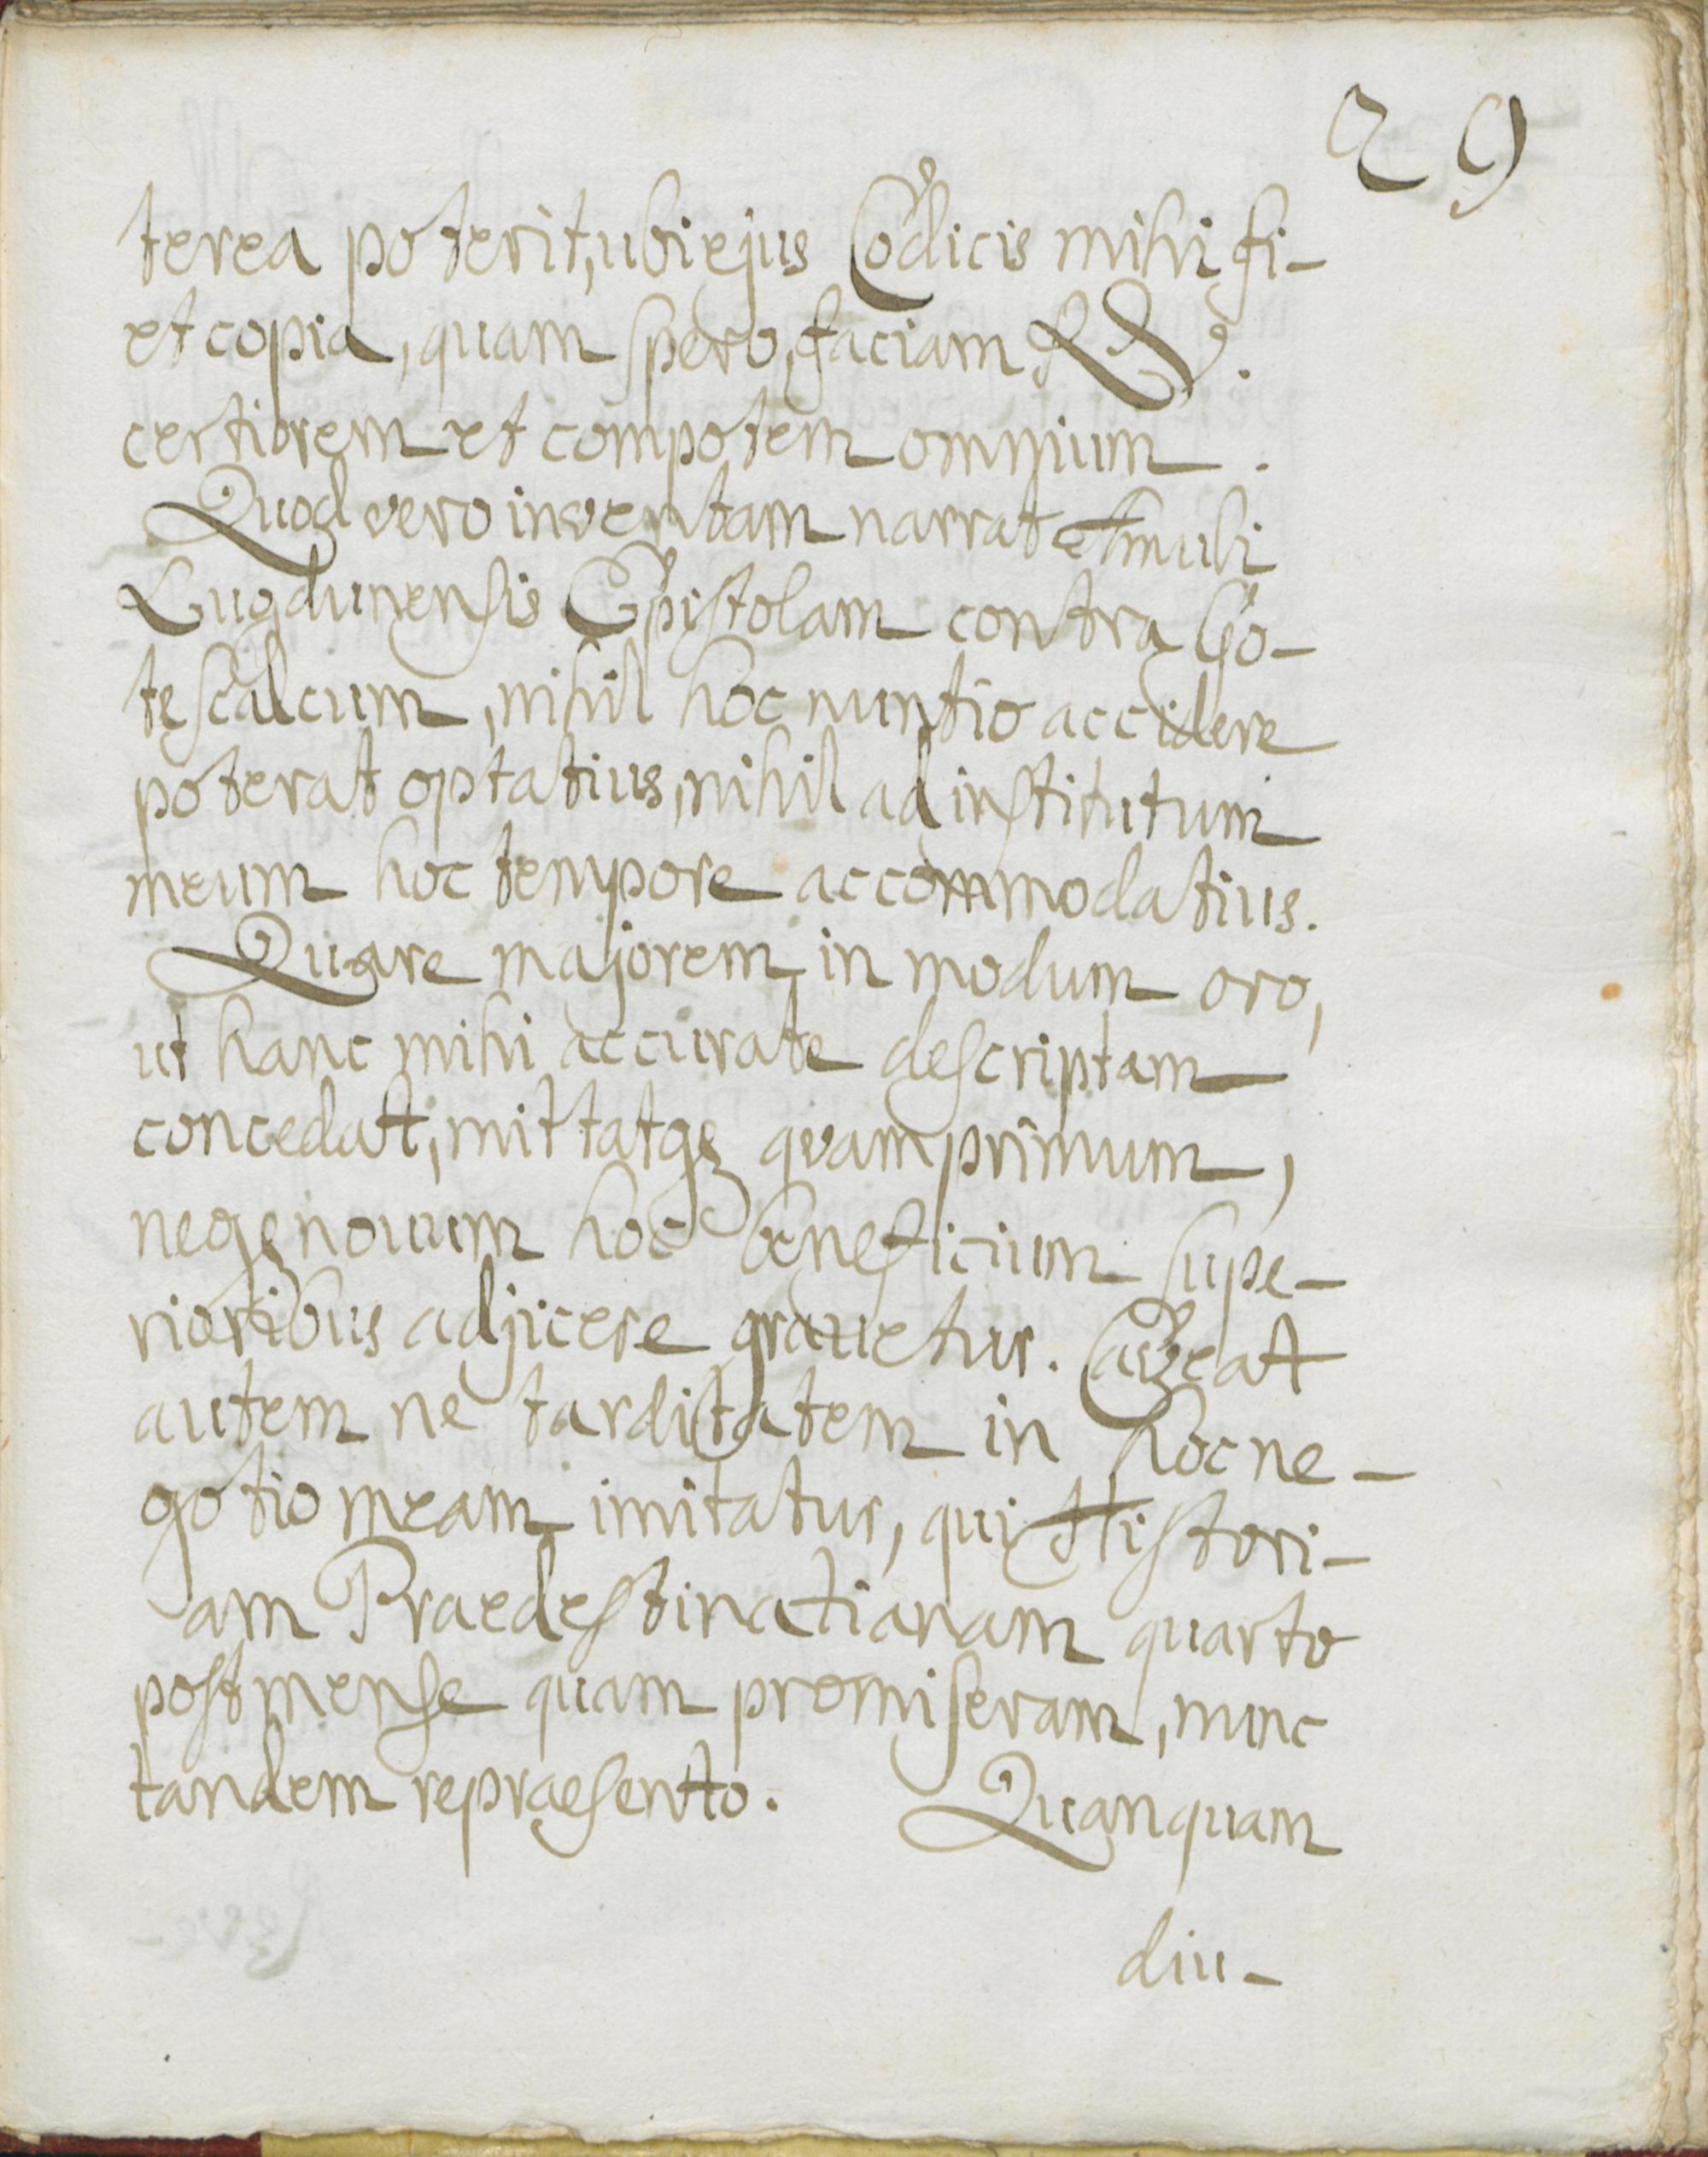 29
terea poterit, ubi ejus Codicis mihi fi-
et copia, quam spero, faciam
certiorem et compotem omnium.
Quod vero inventam narrat Amuli
Lugdunensis Epistolam contra Go-
tescalcum, nihil hoc nuntio accidere
poterat optatius, nihil ad institutum
meum hoc tempore accommodatius.
Quare majorem in modum oro,
ut hanc mihi accurate descriptam
concedat, mittatqȝ quam primum,
neqȝ novum hoc beneficium supe-
rioribus adjicere gravetur. Caveat
autem ne tarditatem in hoc ne-
gotio meam imitatur, qui Histori-
am Praedestinatianam quarto
post mense quam promiseram, nunc
tandem repraesento. Quanquam
diu-